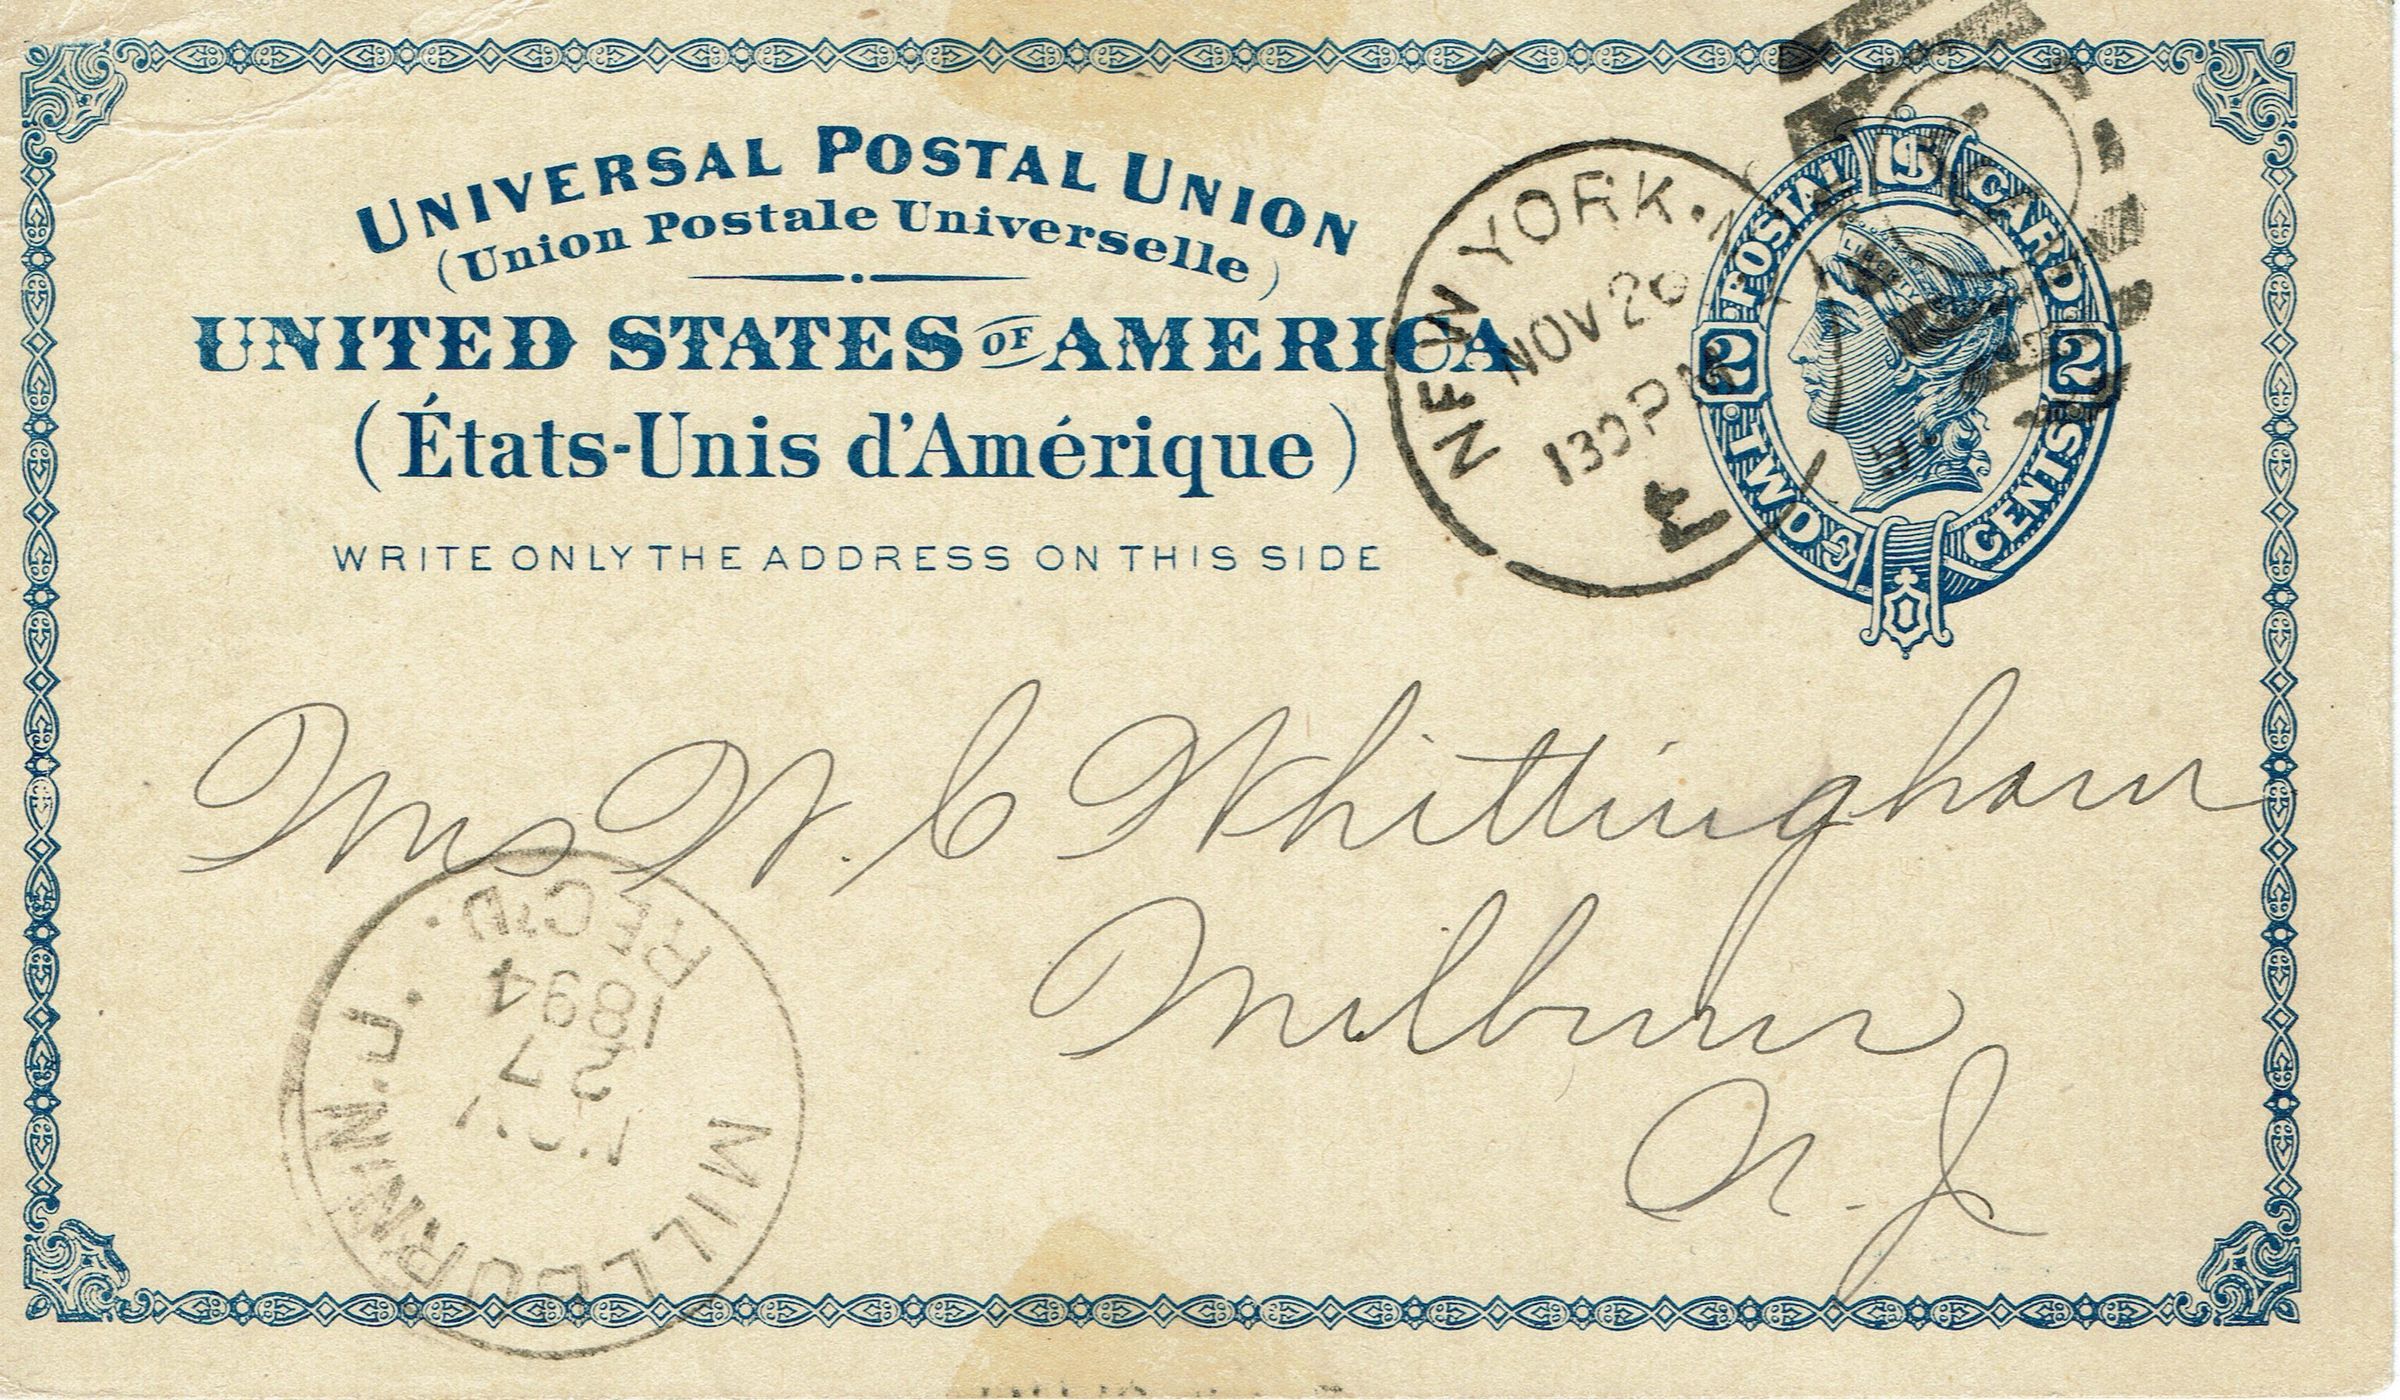 UNIVERSAL POSTAL UNION
(Union Postale Universelle)
UNITED STATES OF AMERICA
(États-Unis d'Amérique)
WRITE ONLY THE ADDRESS ON THIS SIDE
NEW YORK
NOV 26
130 PM
US
POSTAL CARD
2 2
TWO CENTS
Mrs W. C Whittingham
Milburn
N. J.
MILLBURN N.J.
NOV
27
1894
REC'D.